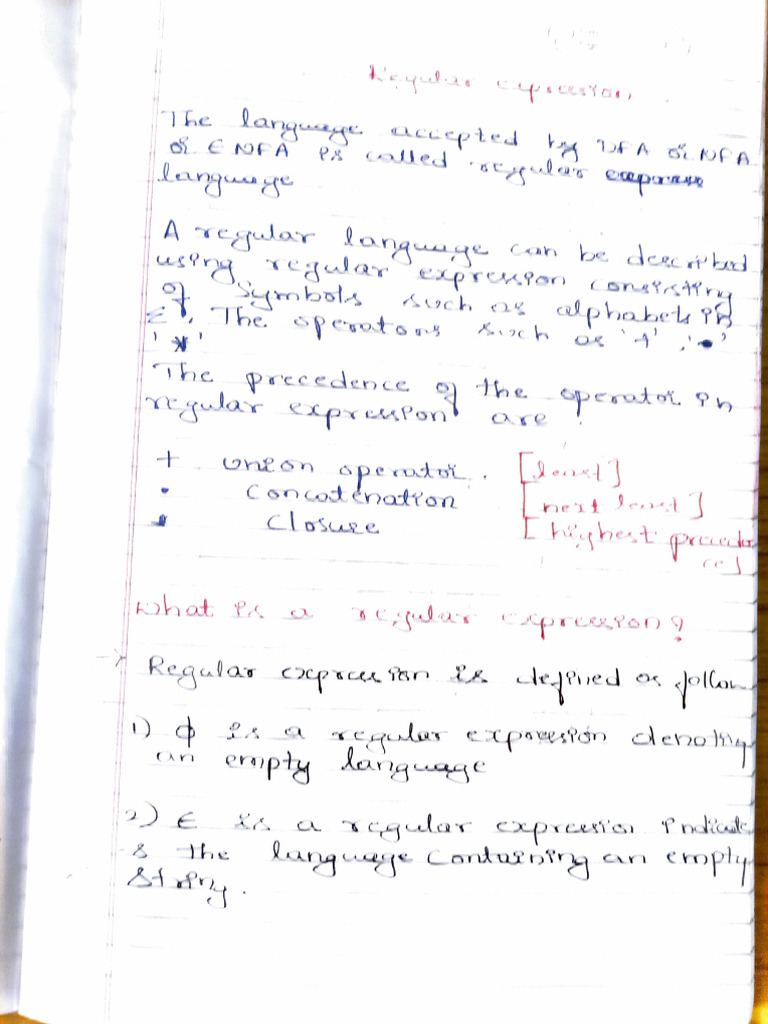 Regular expression.
The language accepted by DFA or NFA
or ∈ NFA is called regular
language
A regular language can be described
using regular expression consisting
of symbols such as alphabets in
Σ, The operators such as '+', '•'
'*'
The precedence of the operator in
regular expression are.
+ union operator. [least]
• Concatenation [next least]
* Closure [highest preceden
ce]
What is a regular expression?
→ Regular expression is defined as follow
1) ϕ is a regular expression denoting
an empty language
2) ∈ is a regular expression indicate
s the language containing an empty
string.